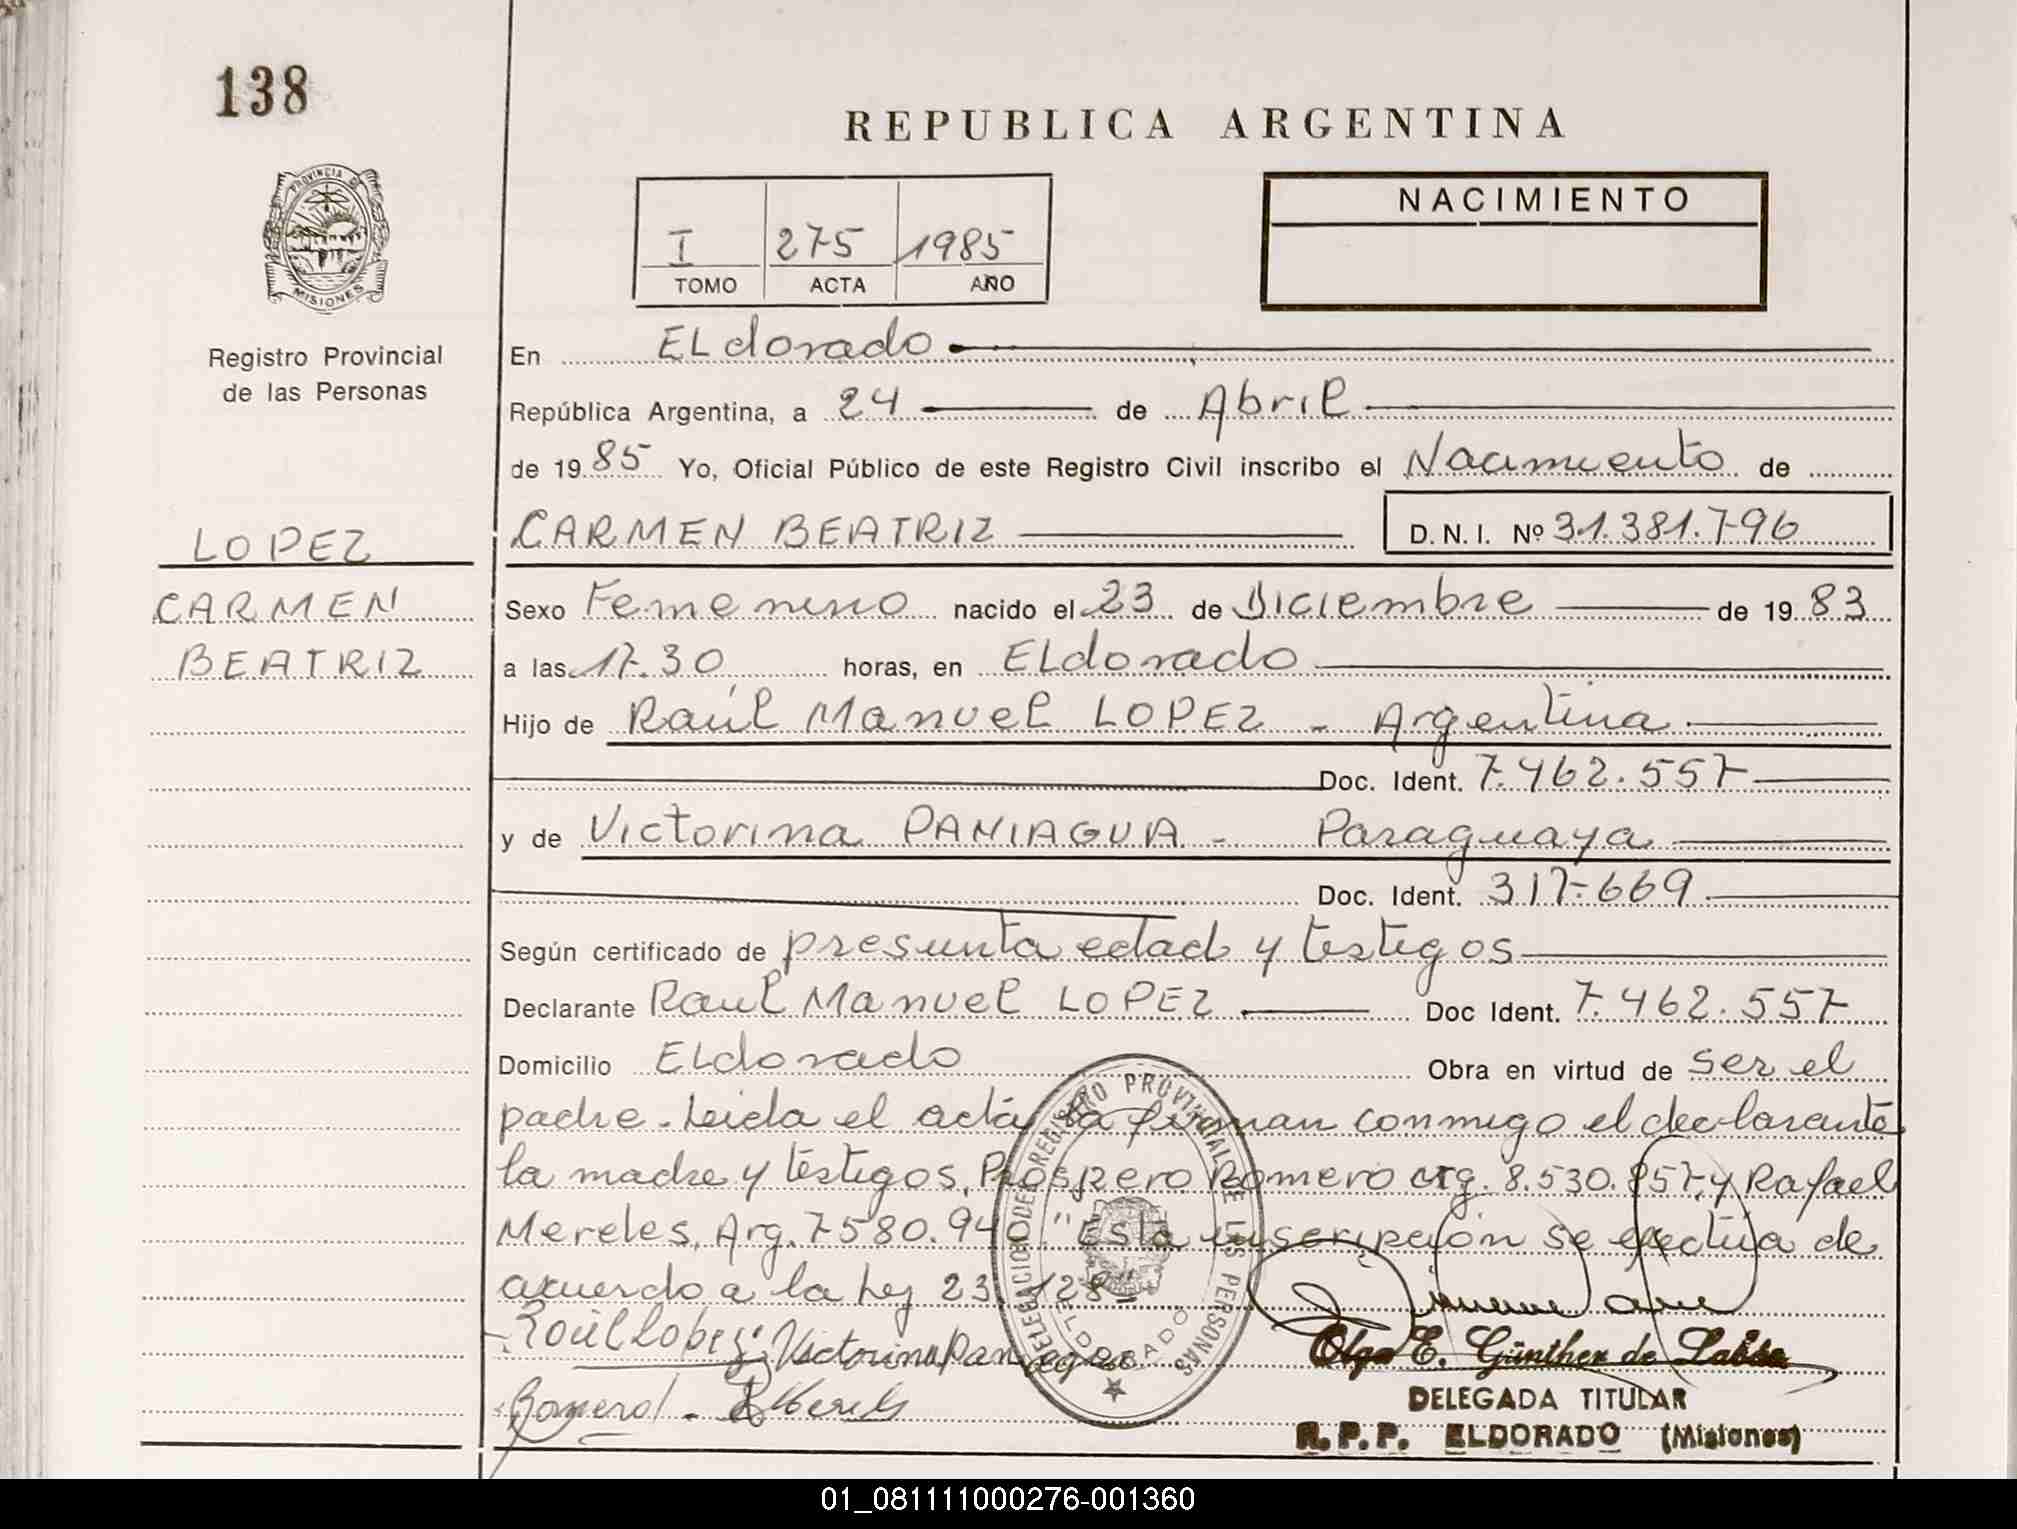 138
REPUBLICA ARGENTINA
PROVINCIA DE
MISIONES
NACIMIENTO
I 275 1985
TOMO ACTA AÑO
Registro Provincial
de las Personas
En ELdorado
República Argentina, a 24 de Abril
de 1985 Yo, Oficial Público de este Registro Civil inscribo el Nacimiento de
LOPEZ
CARMEN BEATRIZ D.N.I. Nº 31.381.796
CARMEN
BEATRIZ
Sexo Femenino nacido el 23 de Diciembre de 1983
a las 17.30 horas, en ELdorado
Hijo de Raúl Manuel LOPEZ - Argentina
Doc. Ident. 7.462.557
y de Victorina PANIAGUA - Paraguaya
Doc. Ident. 317.669
Según certificado de presunta edad y testigos
Declarante Raul Manuel LOPEZ Doc Ident. 7.462.557
Domicilio ELdorado Obra en virtud de ser el
padre. Leida el acta la firman conmigo el declarante
la madre y testigos, Prospero Romero arg. 8.530.857, y Rafael
Mereles, Arg. 7580.940 "Esta inscripción se efectúa de
acuerdo a la Ley 23.128"
Raúl Lopez Victorina Paniagua
Romero
DELEGACION DEL REGISTRO PROVINCIAL DE LAS PERSONAS
ELDORADO
Olga E. Günther de Labba
DELEGADA TITULAR
R.P.P. ELDORADO (Misiones)
01_081111000276-001360